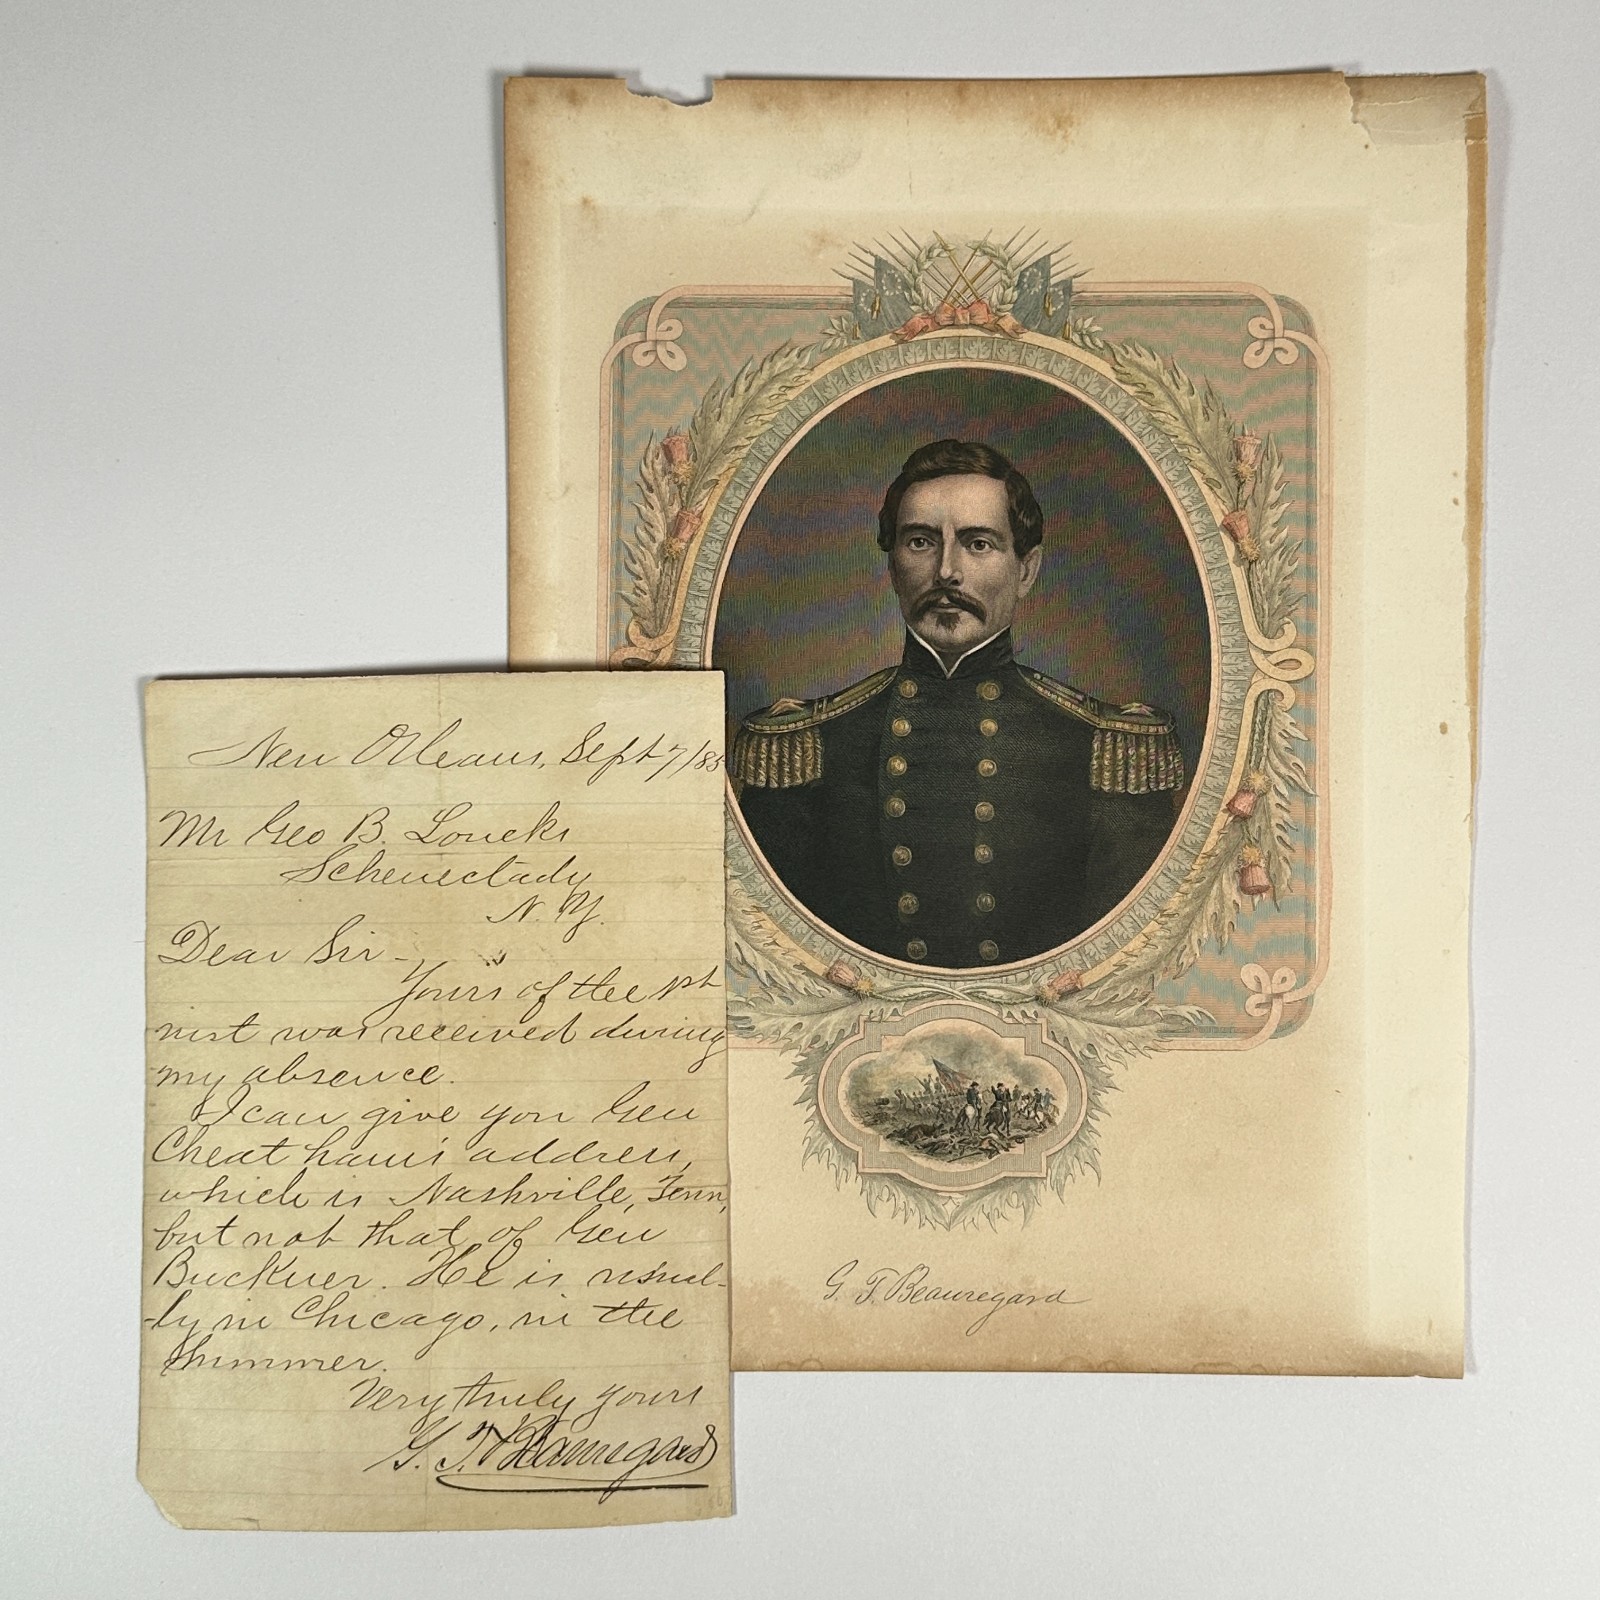 New Orleans, Sept 7/85
Mr Geo B. Loucks
Schenectady
N. Y.
Dear Sir -
Yours of the 1st
inst was received during
my absence.
I can give you Gen
Cheatham's address,
which is Nashville, Tenn,
but not that of Gen
Buckner. He is usual-
ly in Chicago, in the
Summer.
Very truly yours
G. T. Beauregard
G. T. Beauregard